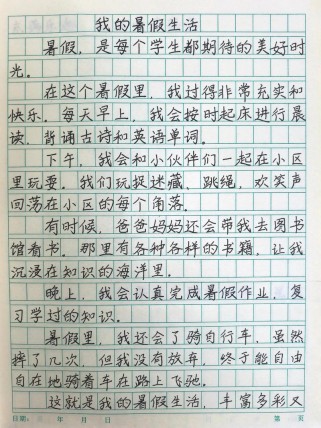 我的暑假生活
暑假，是每个学生都期待的美好时
光。
在这个暑假里，我过得非常充实和
快乐。每天早上，我会按时起床进行晨
读，背诵古诗和英语单词。
下午，我会和小伙伴们一起在小区
里玩耍。我们玩捉迷藏、跳绳，欢笑声
回荡在小区的每个角落。
有时候，爸爸妈妈还会带我去图书
馆看书。那里有各种各样的书籍，让我
沉浸在知识的海洋里。
晚上，我会认真完成暑假作业，复
习学过的知识。
暑假里，我还会了骑自行车，虽然
摔了几次，但我没有放弃，终于能自由
自在地骑着车在路上飞驰。
这就是我的暑假生活，丰富多彩又
日期： 年 月 日 第 页